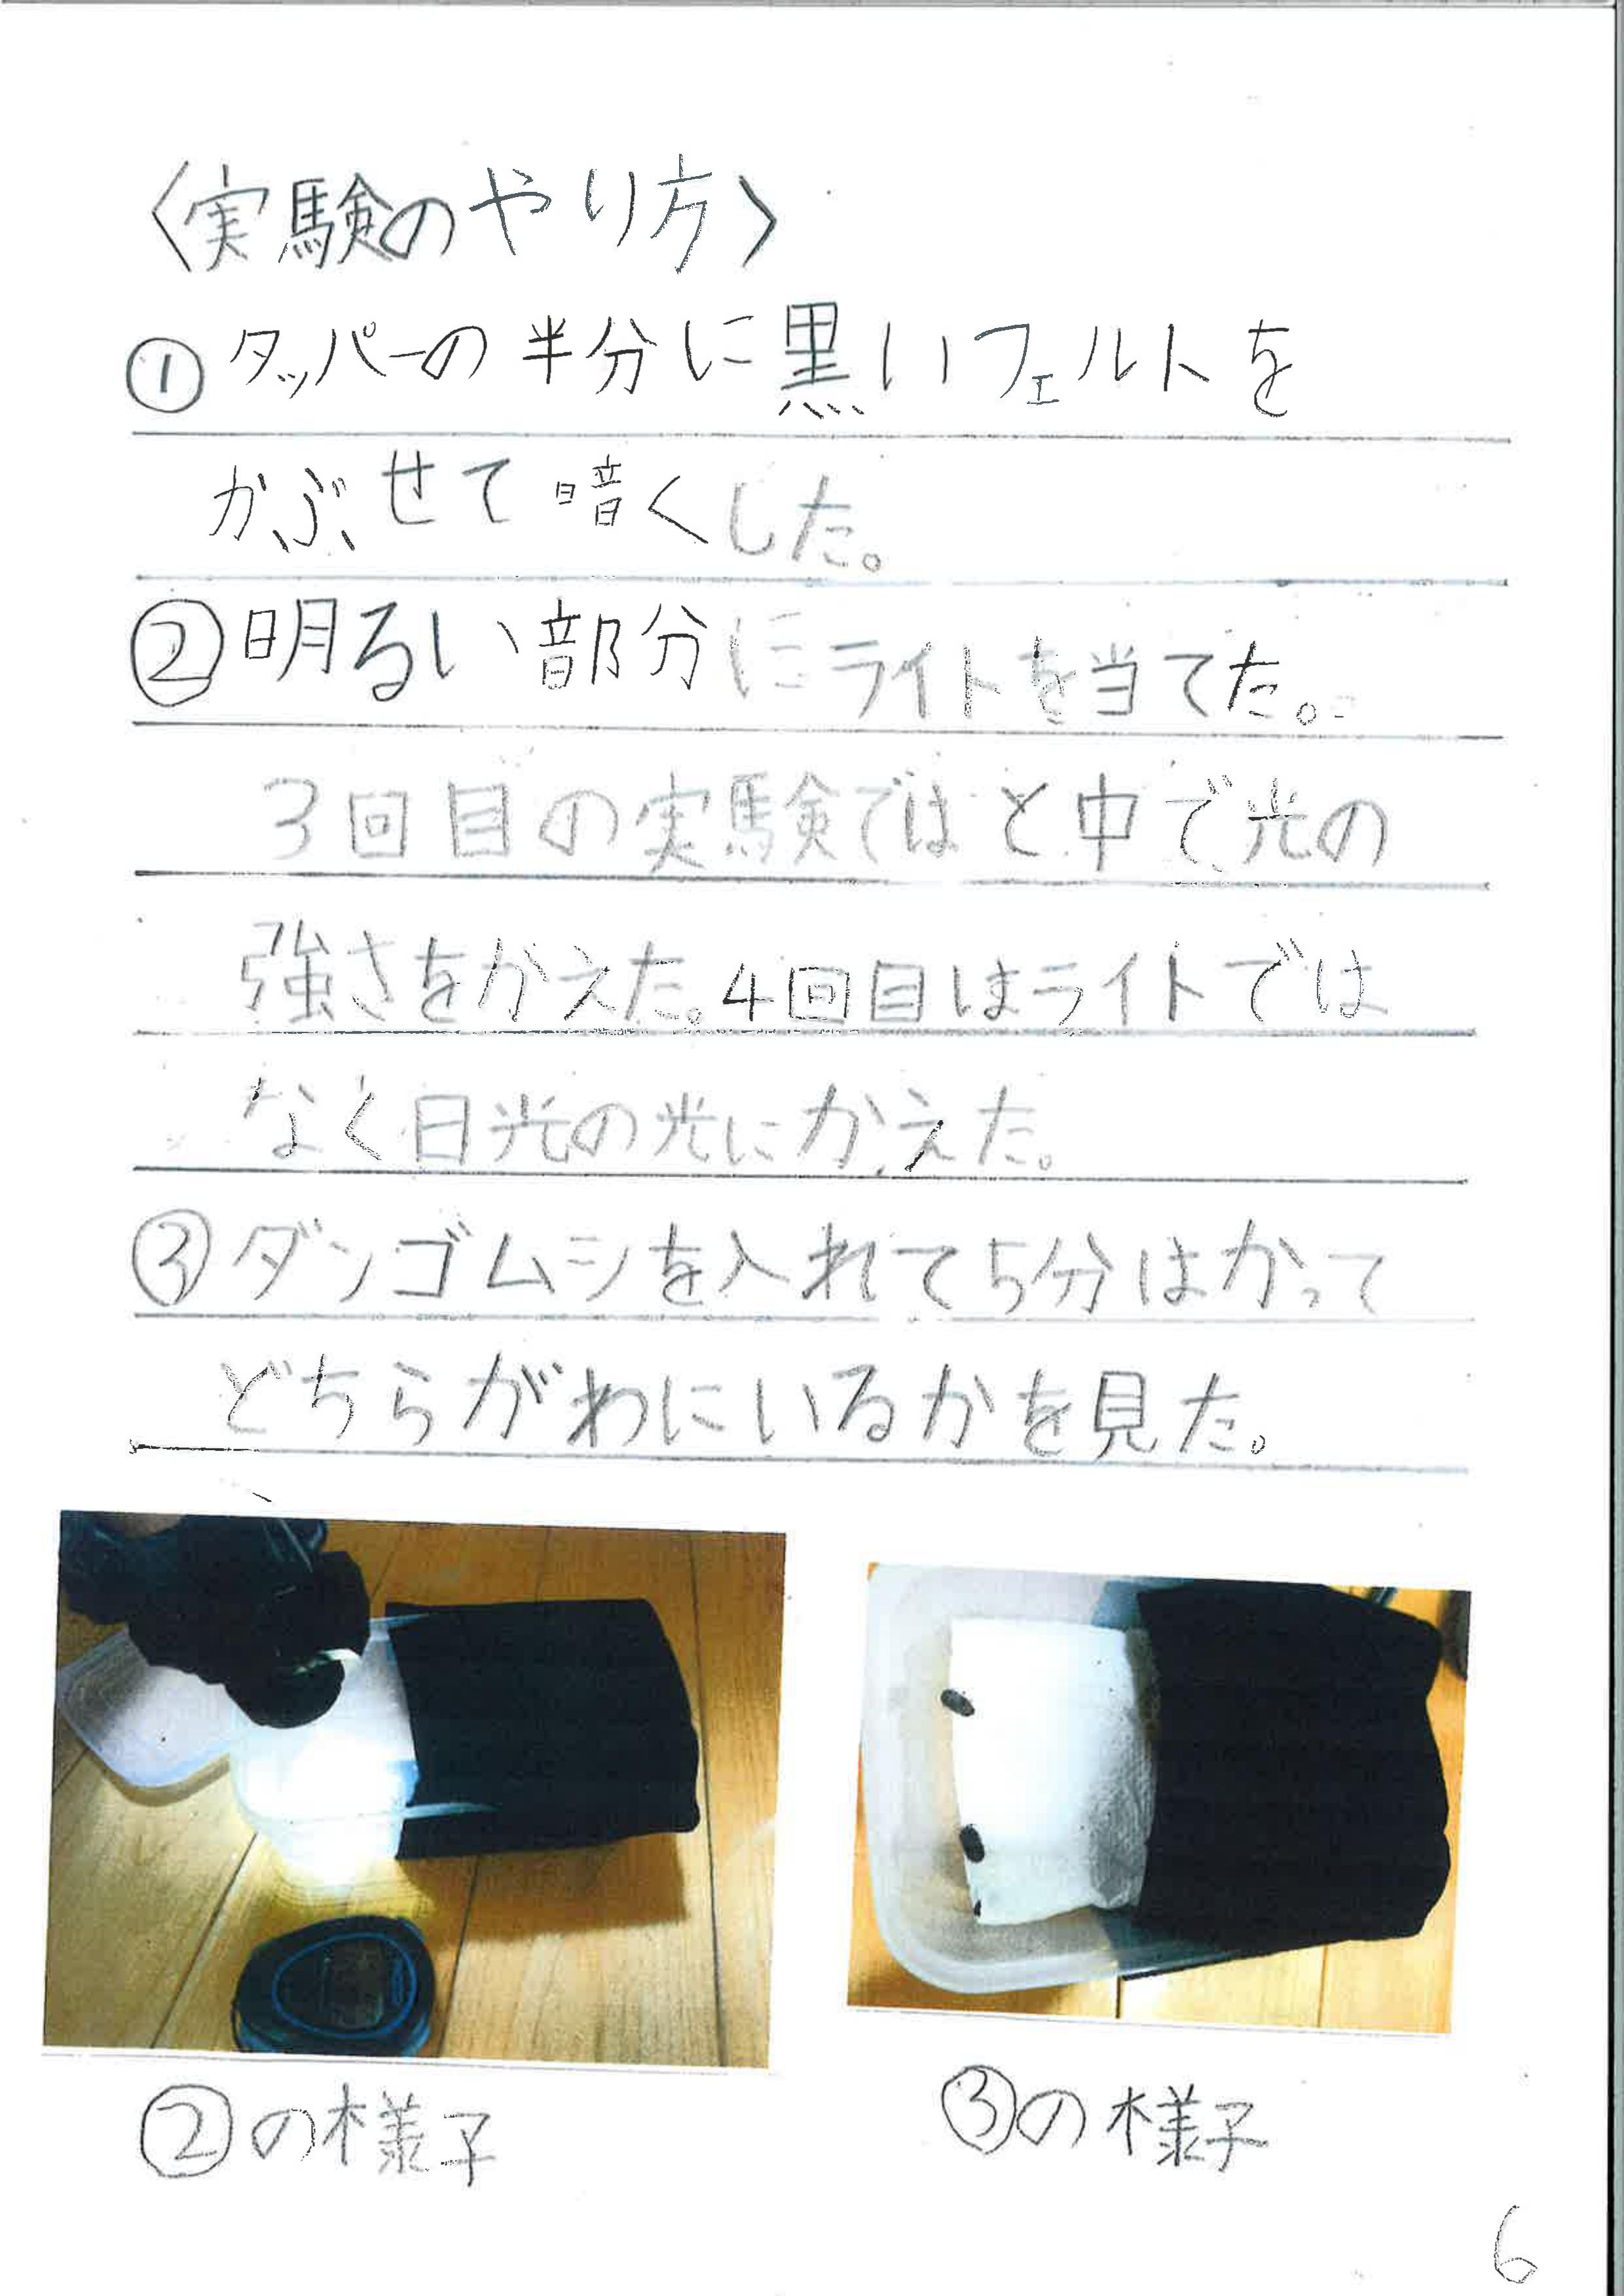 〈実験のやり方〉
①タッパーの半分に黒いフェルトを
かぶせて暗くした。
②明るい部分にライトを当てた。
3回目の実験ではと中で光の
強さをかえた。4回目はライトでは
なく日光の光にかえた。
③ダンゴムシを入れて5分はかって
どちらがわにいるかを見た。
②の様子
③の様子
6